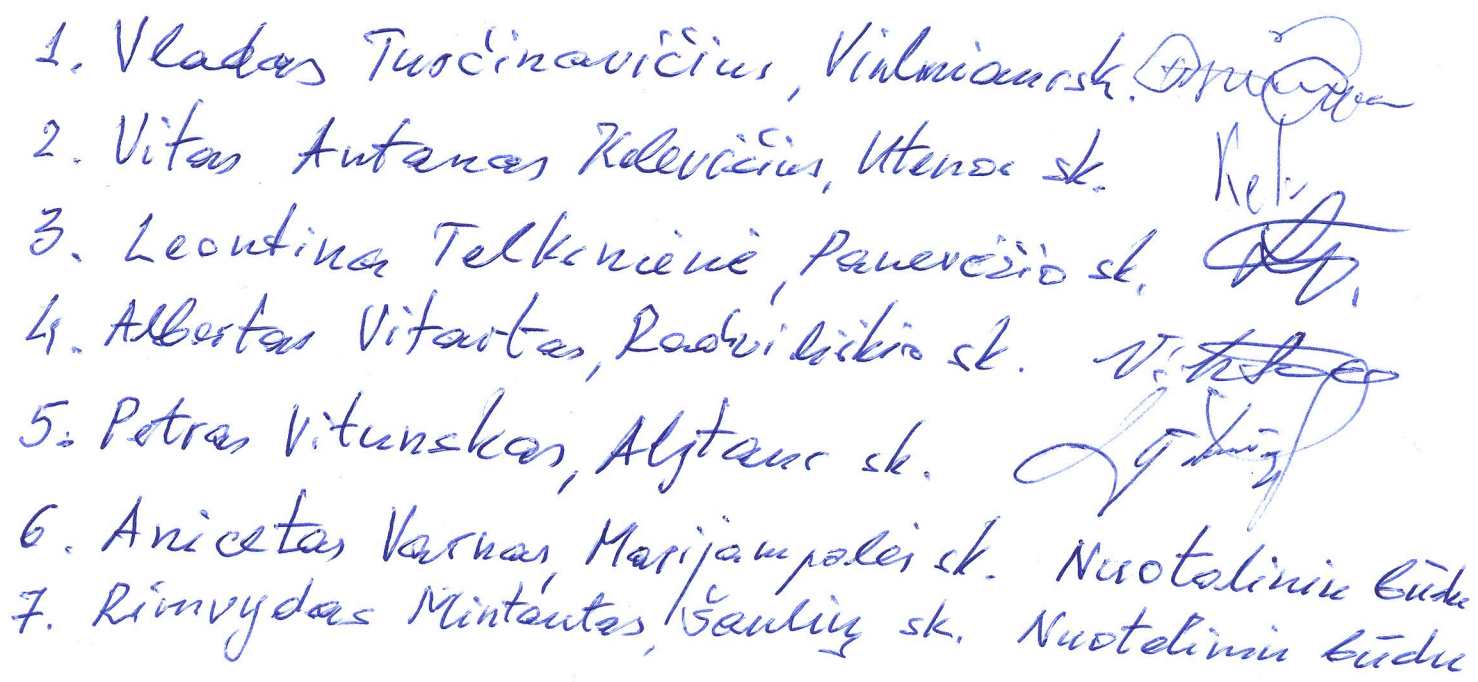 1. Vladas Turčinavičius, Vilniaus sk.
2. Vitas Antanas Kelevičius, Utenos sk.
3. Leontina Telksnienė, Panevėžio sk.
4. Albertas Vitartas, Radviliškio sk.
5. Petras Vitunskas, Alytaus sk.
6. Anicetas Varnas, Marijampolės sk. Nuotoliniu būdu
7. Rimvydas Mintautas, Šaulių sk. Nuotoliniu būdu